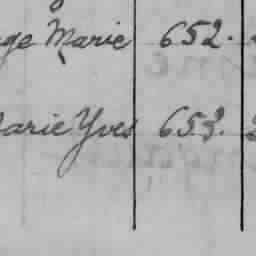 ge Marie 652.
Marie Yves 653.